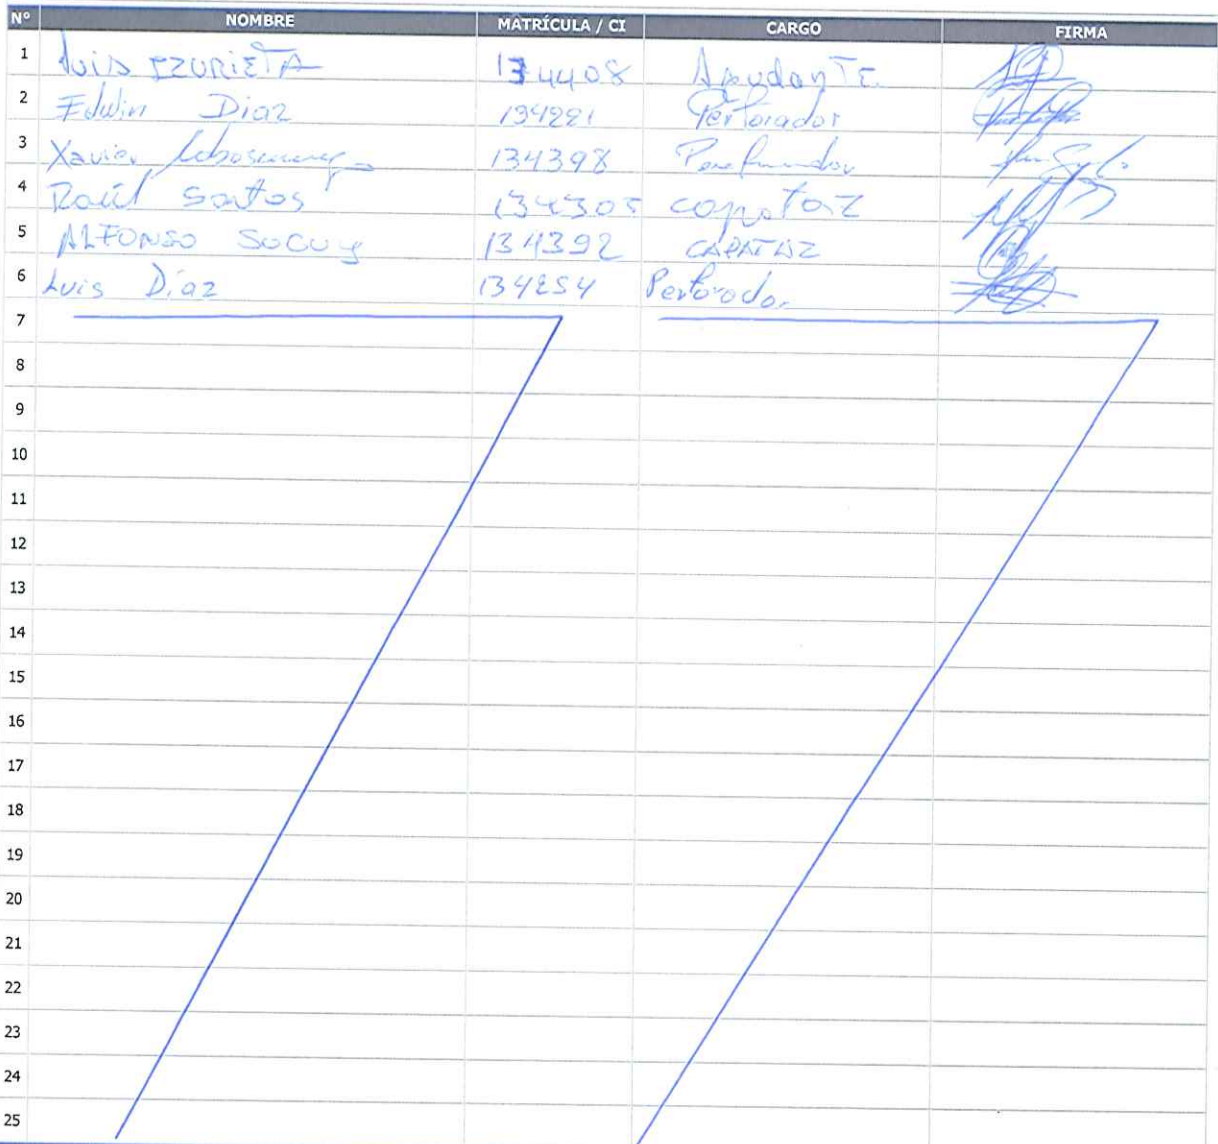 N° NOMBRE MATRÍCULA / CI CARGO FIRMA
1 Luis IZURIETA 134408 Ayudante
2 Edwin Diaz 134221 Perforador
3 Xavier 134398
4 Raúl Santos 134305 capataz
5 ALFONSO SUCUY 134392 CAPATAZ
6 Luis Díaz 134254 Perforador
7
8
9
10
11
12
13
14
15
16
17
18
19
20
21
22
23
24
25